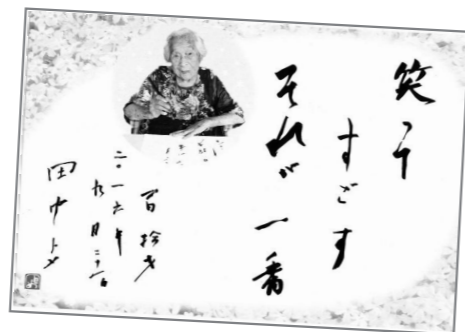 笑って
すごす
それが
一番
百拾才
二〇一六年
九月二十一日
田中トメ